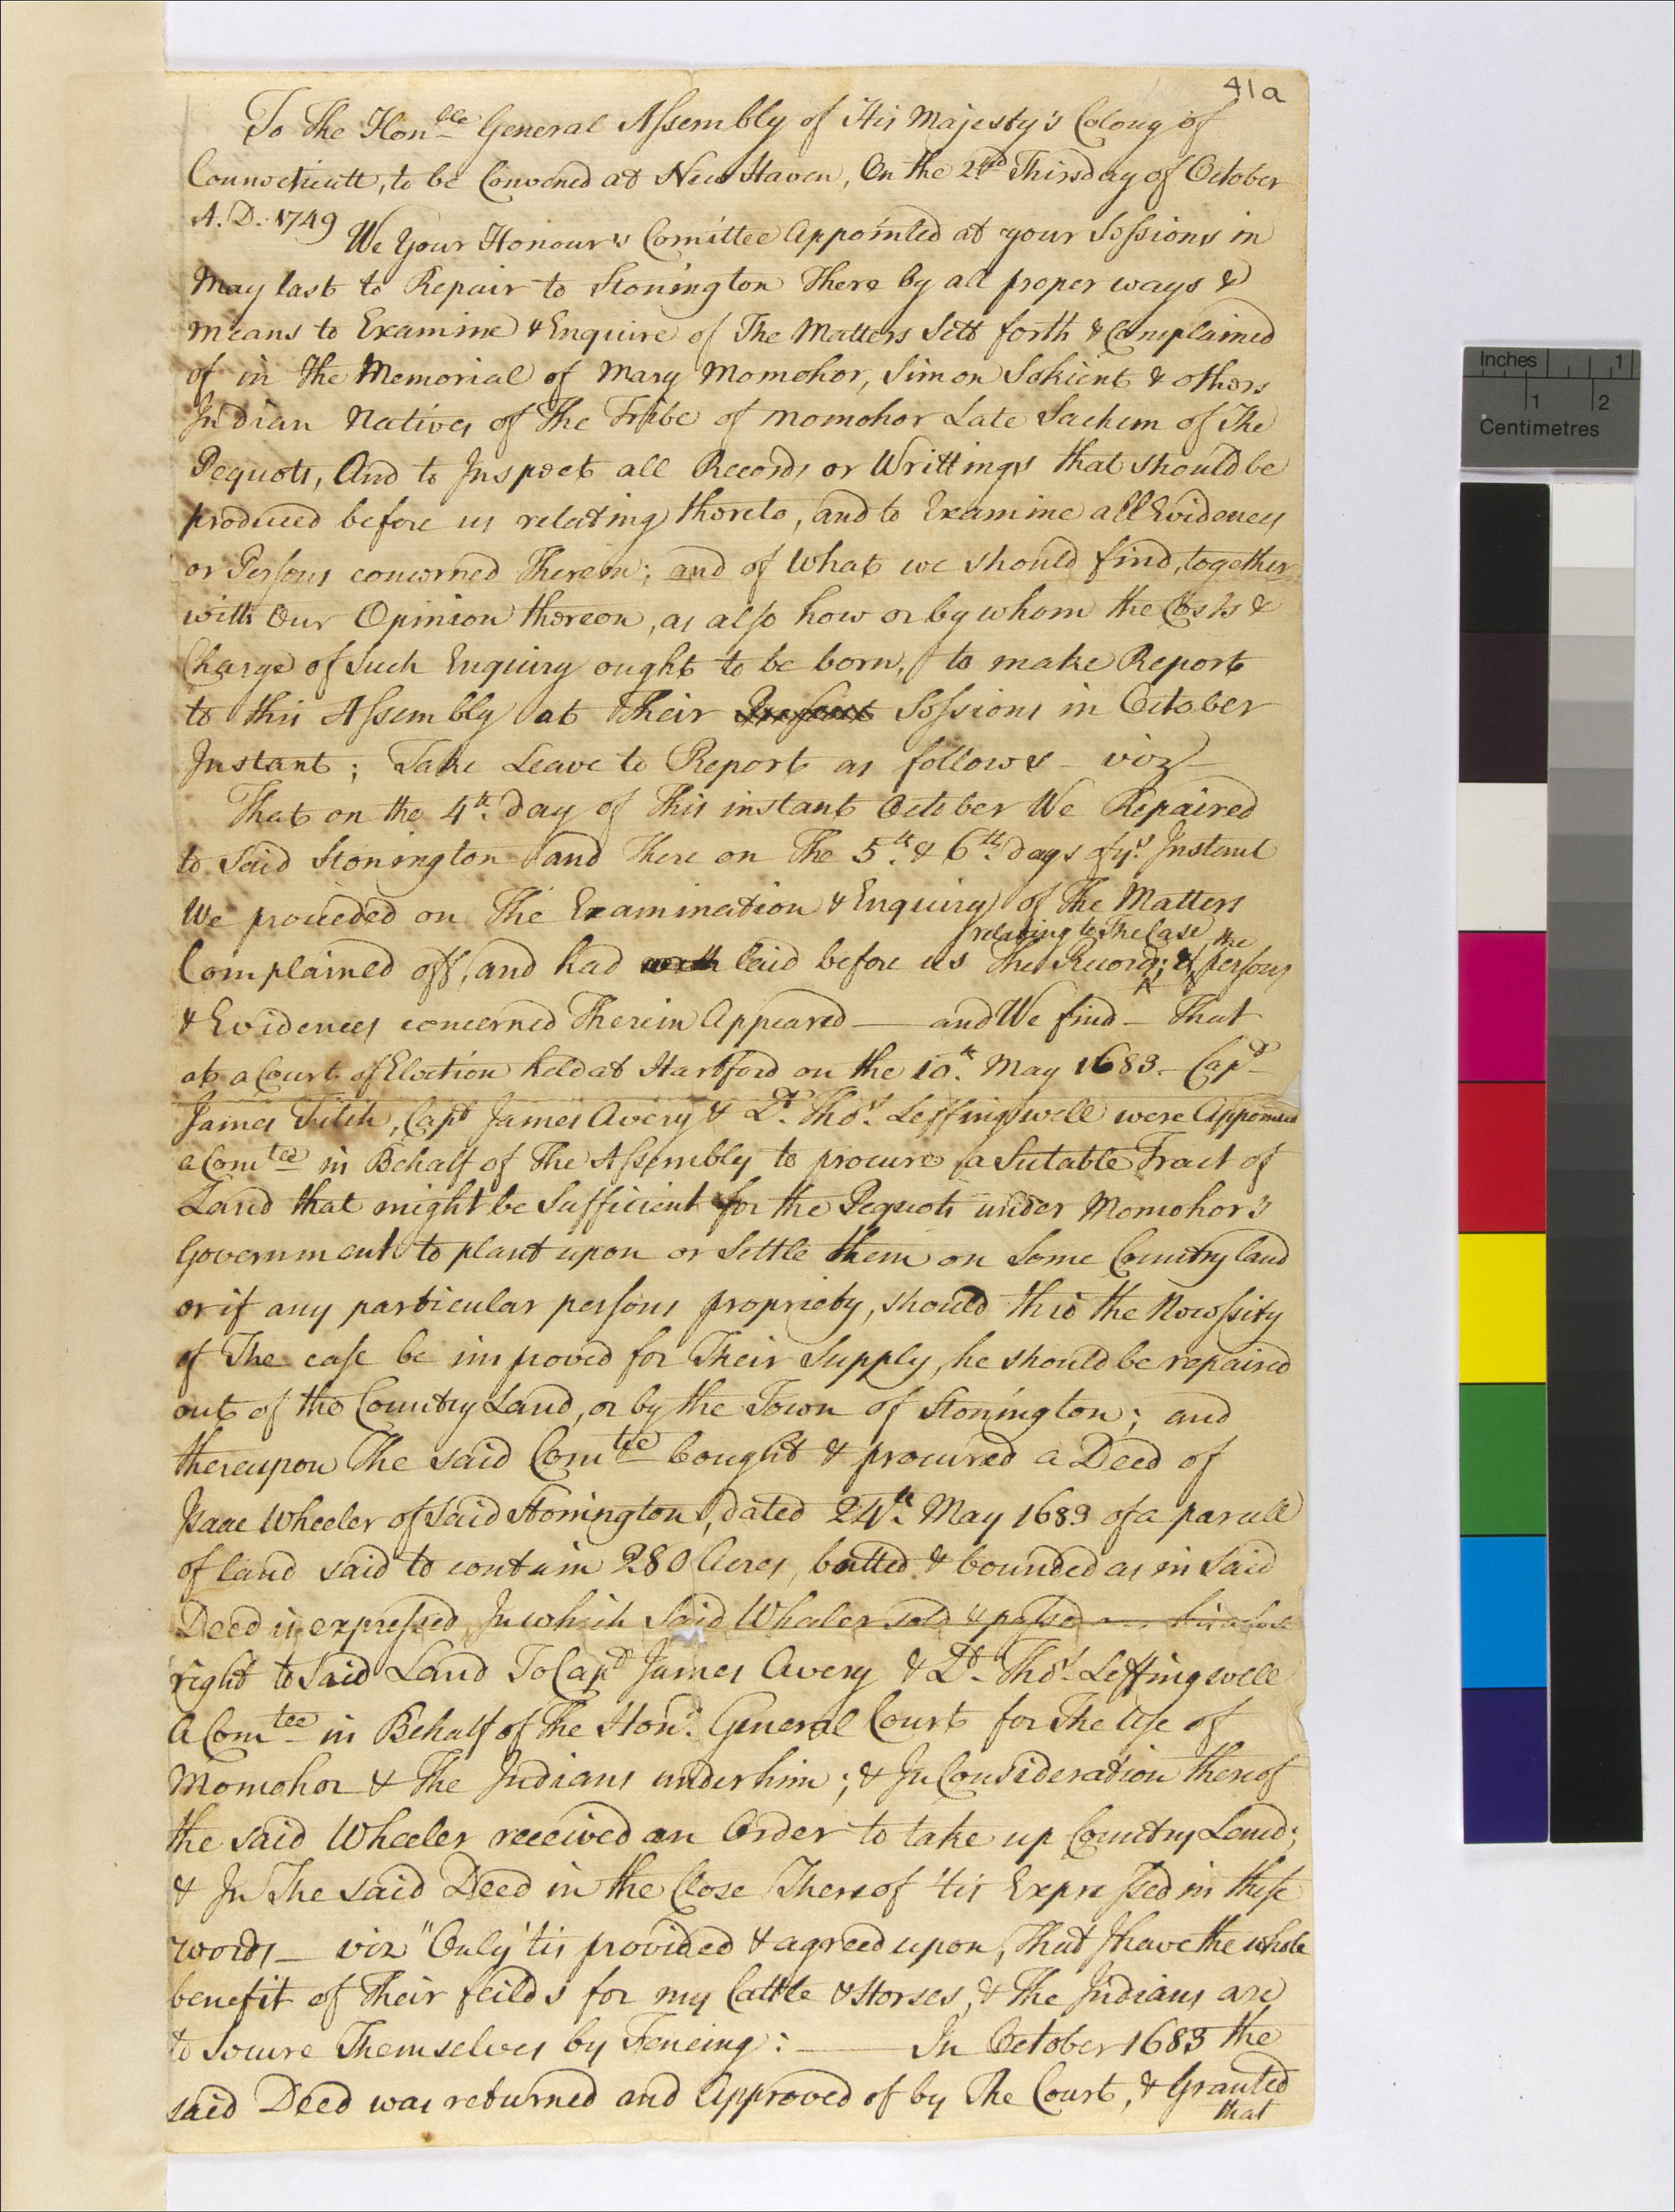 41a
To The Hon^ble General Assembly of His Majesty's Colony of
Connecticutt, to be Convened at New Haven, On the 2^nd Thirsday of October
A.D. 1749
We Your Honour's Comittee Appointed at your Sessions in
May last to Repair to Stonington There by all proper ways &
means to Examine & Enquire of The Matters Sett forth & Complained
of in the Memorial of Mary Momohor, Simon Sokient & others
Indian Natives of The Tribe of Momohor Late Sachem of The
Pequots, And to Inspect all Records or Writtings that should be
produced before us relating thereto, and to Examine all Evidences
or Persons concerned Therein; and of What we should find, together
with Our Opinion thereon, as also how or by whom the Costs &
Charge of Such Enquiry ought to be born, to make Report
to this Assembly at Their Sessions in October
Instant; Take Leave to Report as follows - viz
That on the 4^th. Day of This instant October We Repaired
to Said Stonington and There on The 5^th. & 6^th. Days of y^s. Instant
We proceeded on The Examination & Enquiry of The Matters
relating to The Case the
Complained off, and had laid before us The Records; & persons
& Evidences concerned Therein Appeared — and We find - That
at a Court of Election held at Hartford on the 10^th. May 1683 - Cap^t
James Fitch, Cap^t James Avery & L^t. Tho^s. Leffingwell were Appointed
a Com^tee in Behalf of The Assembly to procure a Sutable Tract of
Land that might be Sufficient for the Pequots under Momohor's
Government to plant upon or Settle them on Some Country land
or if any particular persons propriety, should thro the Necessity
of The case be improved for Their Supply, he should be repaired
out of the Country Land, or by the Town of Stonington; and
thereupon The said Com^tee bought & procured a Deed of
Isaac Wheeler of said Stonington, dated 24^th. May 1683 of a parcell
of land said to contain 280 Acres, butted & bounded as in Said
Deed is expressed, In which Said Wheeler sold & passed
right to Said Land To Cap^t James Avery & L^t. Tho^s. Leffingwell
A Com^tee in Behalf of The Hon^r. General Court for The Use of
Momohor & The Indians under him; & In Consideration thereof
the said Wheeler received an Order to take up Country Land;
& In The said Deed in the Close Thereof 'tis Expressed in these
words - viz "Only 'tis provided & agreed upon, That I have the whole
benefit of Their feilds for my Cattle & Horses, & The Indians are
to Secure Themselves by Fencing: — In October 1683 the
said Deed was returned and Approved of by The Court, & Granted
that